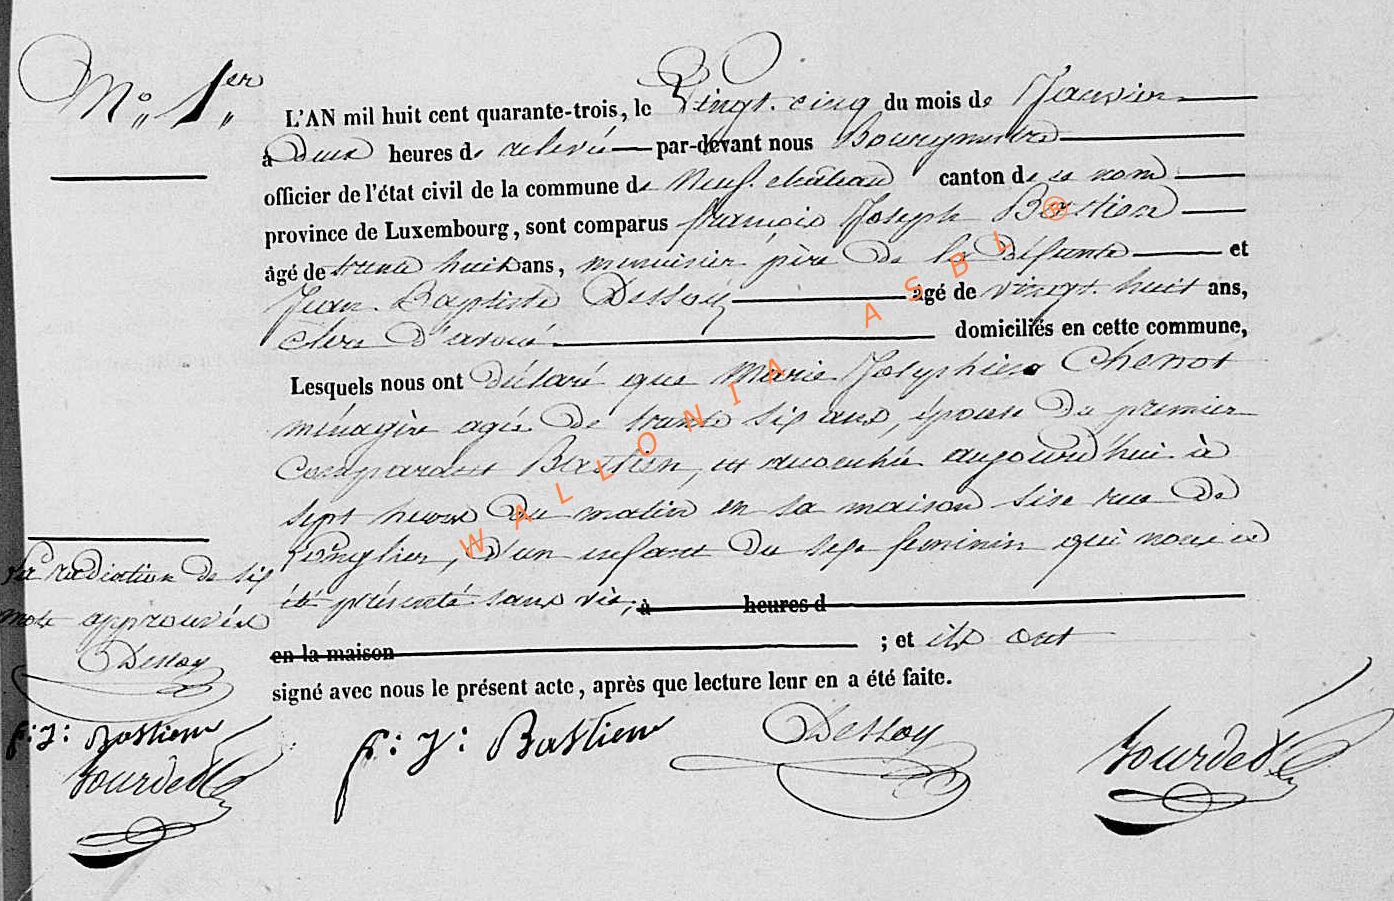 N° 1er
L'AN mil huit cent quarante-trois, le Vingt-cinq du mois de Janvier
à Deux heures de relevée par-devant nous Bourgmestre
officier de l'état civil de la commune de Neufchâteau canton de ce nom
province de Luxembourg, sont comparus françois Joseph Bastien
âgé de trente huit ans, menuisier père de la défunte et
Jean Baptiste Dessoy âgé de vingt huit ans,
clerc d'avoué domiciliés en cette commune,
Lesquels nous ont Déclaré que Marie Josephine Chenot
ménagère agée De trente six ans, épouse Du premier
Comparant Bastien, est accouchée aujourd'hui à
sept heures Du matin en sa maison sise rue De
Longlier, D'un enfant Du sexe feminin qui nous a
été présenté sans vie, à heures d
en la maison ; et ils ont
signé avec nous le présent acte, après que lecture leur en a été faite.
La radiation De six
mots approuvée
Dessoy
f: J: Bastien
f: J: Bastien Dessoy
WALLONIA ASBL ®